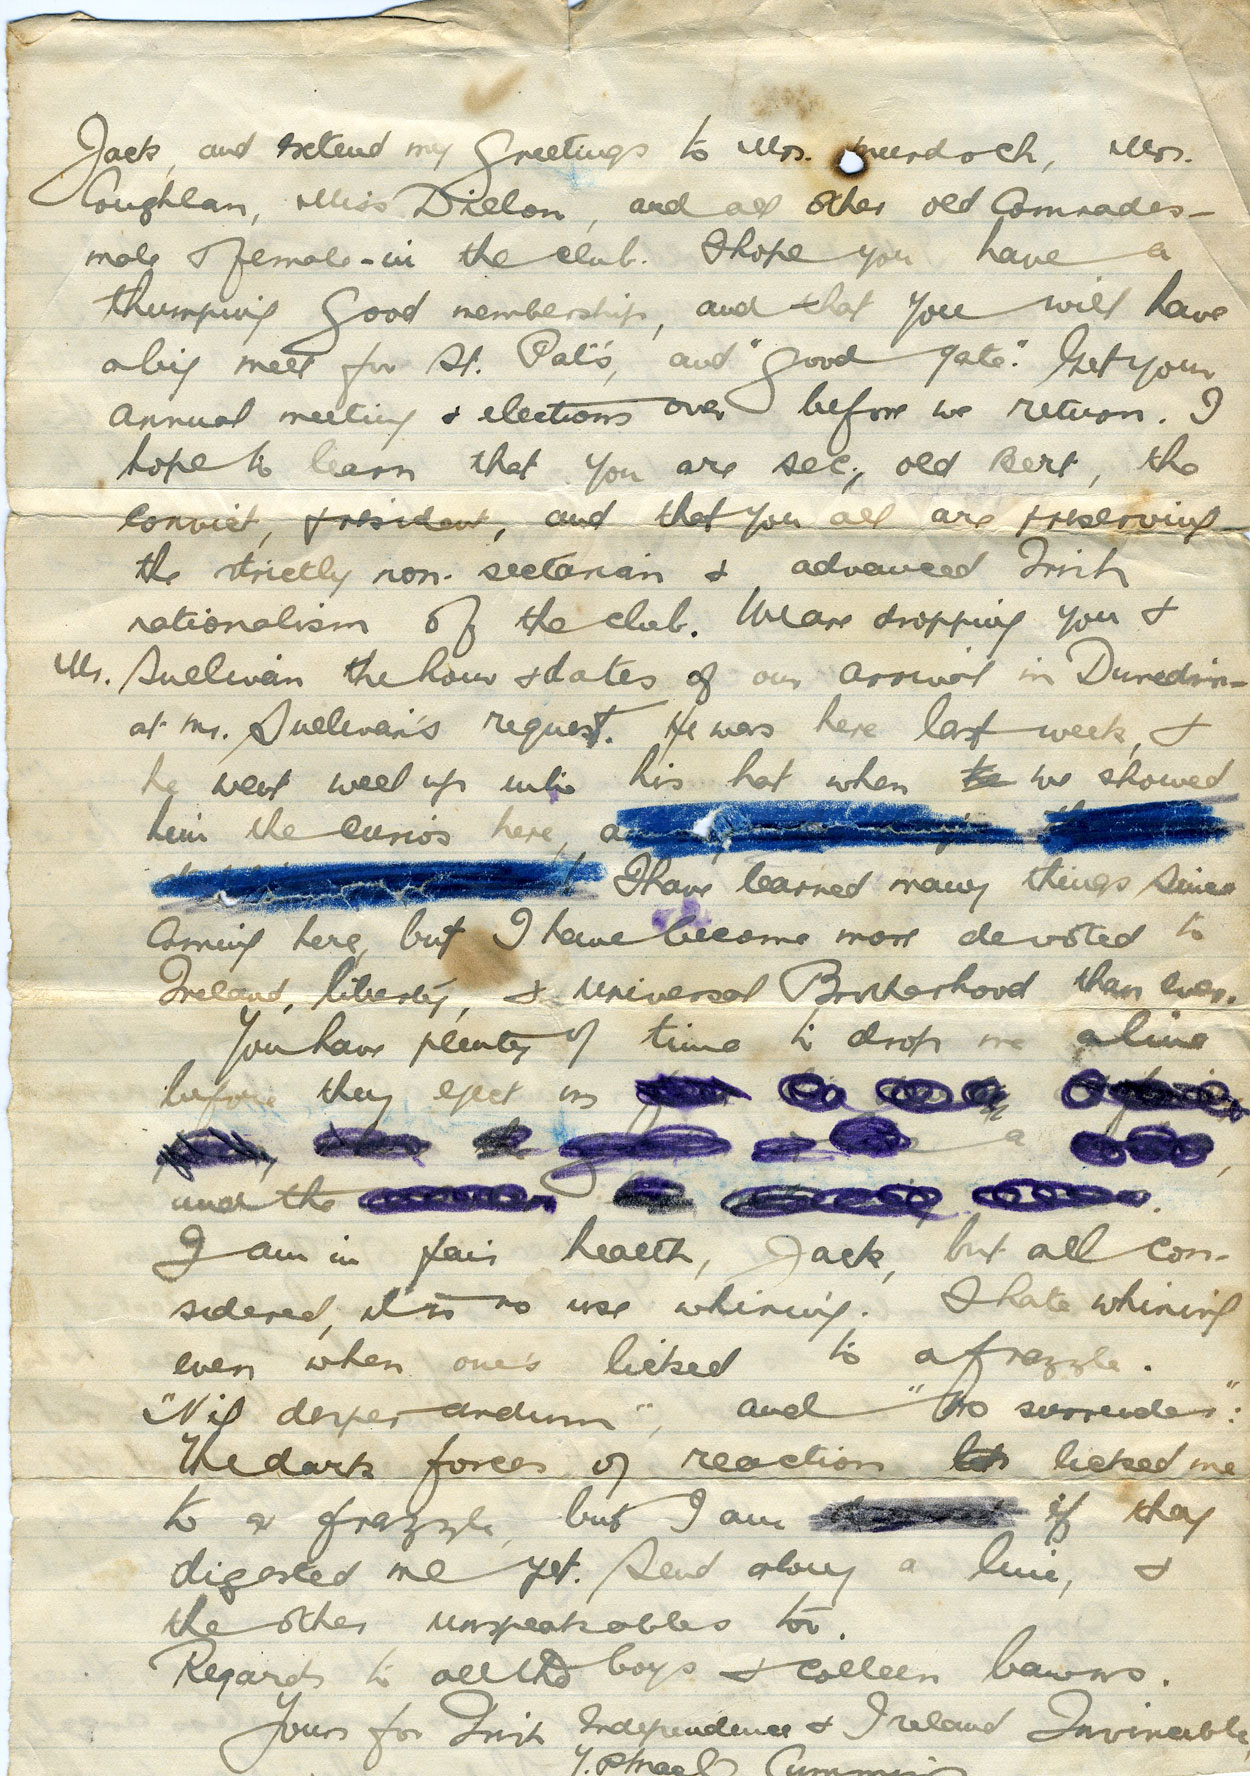 Jack, and extend my Greetings to Mrs. Murdoch, Mrs.
Coughlan, Miss Dillon, and all other old Comrades -
male & female - in the club. I hope you have a
thumping good membership, and that you will have
a big meet for St. Pat's, and "good gate". Get your
annual meeting & elections over before we return. I
hope to learn that you are sec., old Bert, the
convict, president, and that you all are preserving
the strictly non-sectarian & advanced Irish
nationalism of the club. We are dropping you &
Mr. Sullivan the hour & dates of our arrival in Dunedin -
at Mr. Sullivan's request. He was here last week, &
he went well up into his hat when we showed
him the curios here,
I have learned many things since
coming here, but I have become more devoted to
Ireland, liberty, & Universal Brotherhood than ever.
You have plenty of time to drop me a line
before they eject us
a
under the
I am in fair health, Jack, but all con-
sidered, it is no use whining. I hate whining
even when one's licked to a frazzle.
"Nil desperandum", and "No surrender":
The dark forces of reaction licked me
to a frazzle, but I am if they
digested me yet. Send along a line, &
the other unspeakables too.
Regards to all the boys & colleen bawns.
Yours for Irish Independence & Ireland Invincible,
Cumming